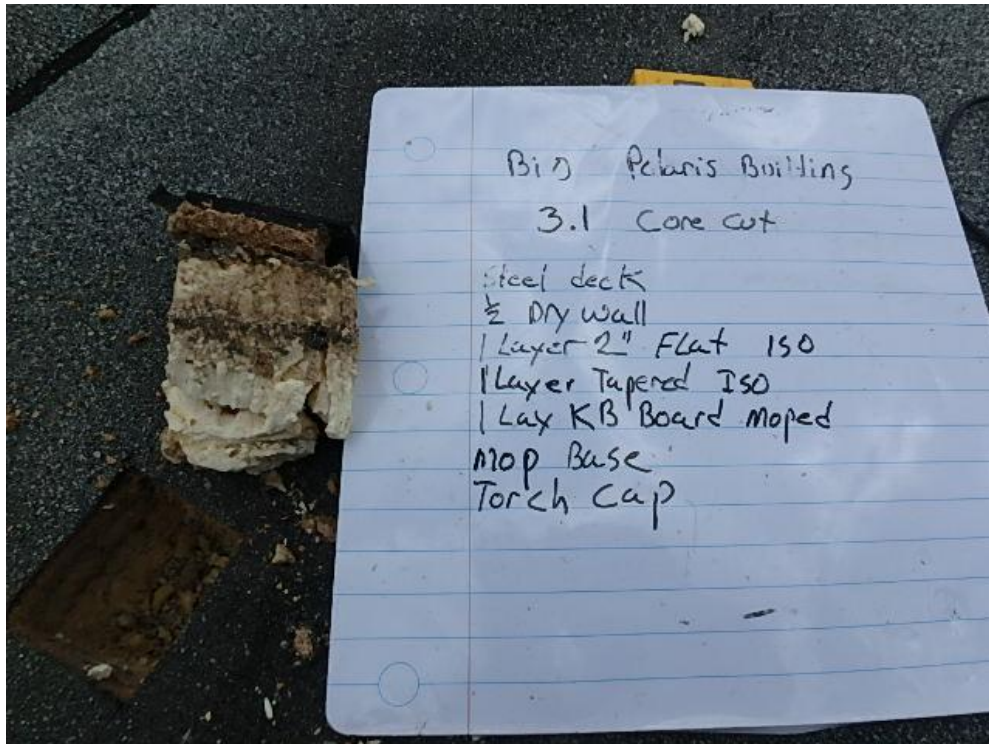 Polaris Building
3.1 Core cut
Steel deck
½ Dry wall
1 Layer 2" Flat ISO
1 Layer Tapered ISO
1 Lay KB Board Moped
Mop Base
Torch Cap